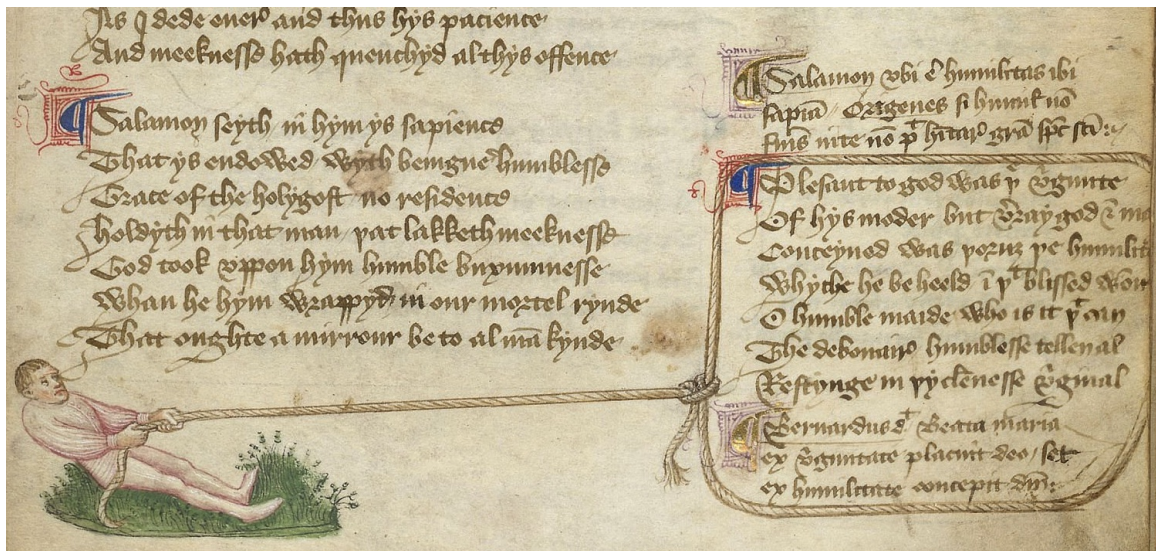 As I dede euer and thus hys pacience
And meeknesse hath quenchyd al thys offence
Salamon seyth in hym ys sapience
That ys endowed wyth benigne humblesse
Grace of the holygost no residence
Holdyth in that man þat lakketh meeknesse
God took vppon hym humble buxumnesse
Whan he hym wrappyd in our mortel rynde
That oughte a mirrour be to al mākynde
Salamon vbi ē humilitas ibi
sapiā Origenes si humil nō
fuis nō grā
Plesant to god was þe virginite
Of hys moder but verray god
Conceyued was þoruz þe humilite
Whyche he beheeld ī þt blissed
O humble maide who is it þt can
The debonair humblesse tellen al
Restynge in þy clēnesse virginal
Bernardus Beata maria
ex virginitate placuit deo set
ex humilitate concepit dm